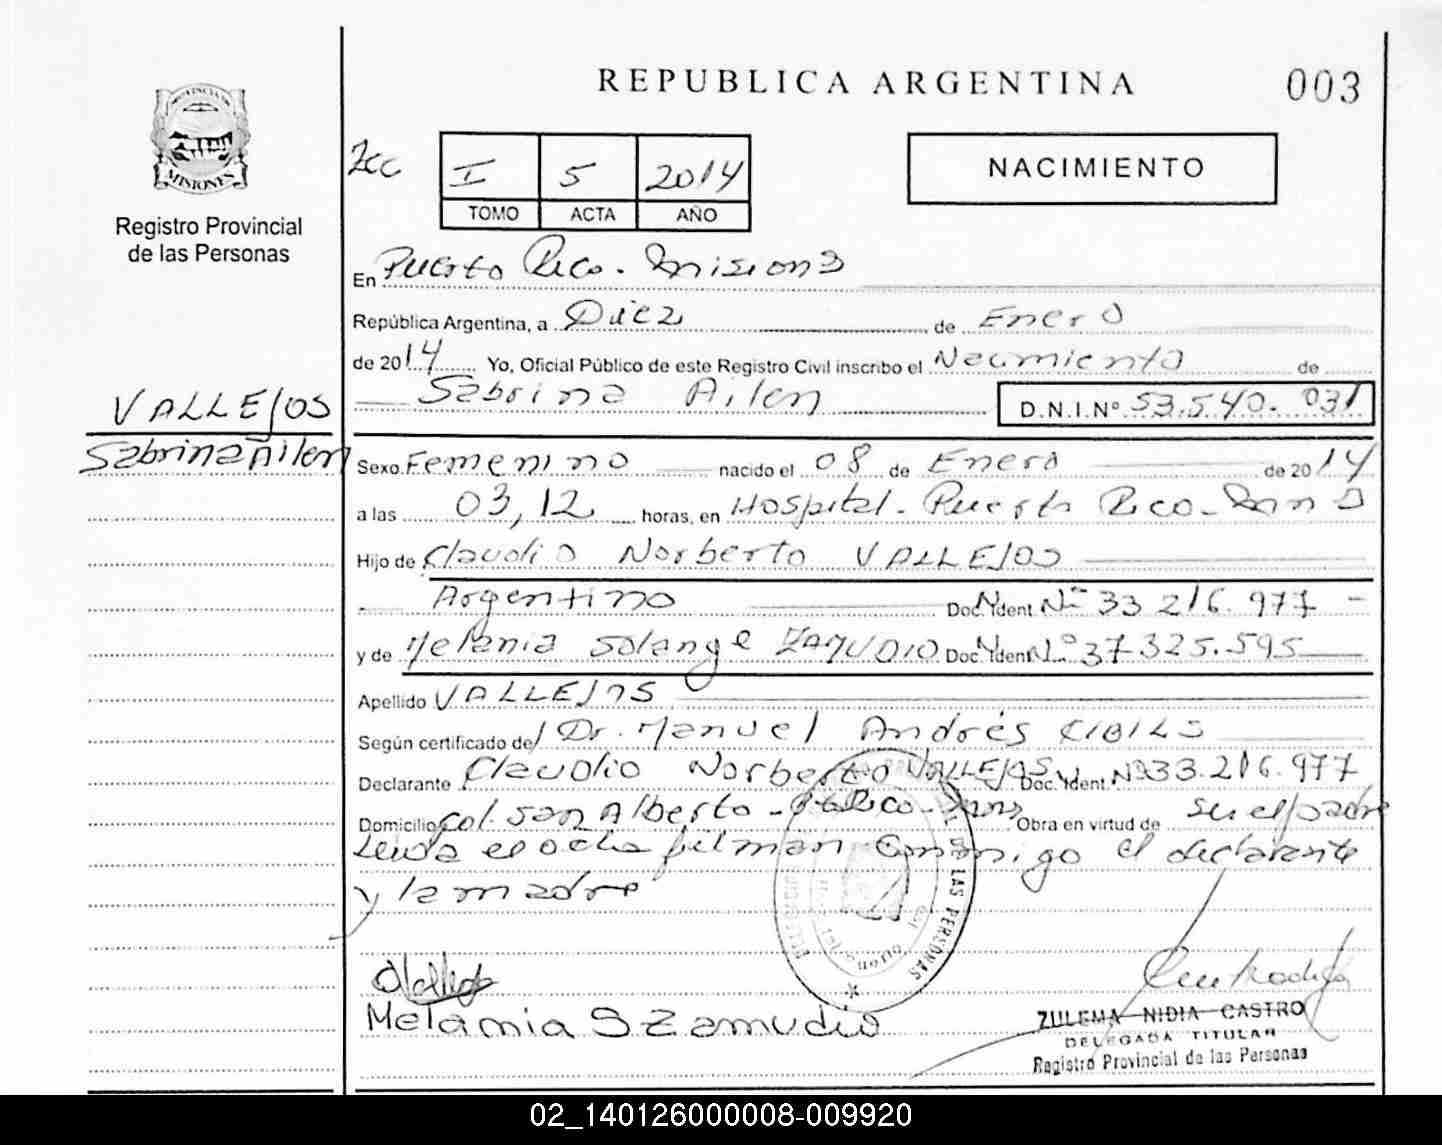 REPUBLICA ARGENTINA
003
PROVINCIA DE
MISIONES
Registro Provincial
de las Personas
I 5 2014
TOMO ACTA AÑO
NACIMIENTO
En Puerto Rico - Misiones
República Argentina, a Diez de Enero
de 2014 Yo, Oficial Público de este Registro Civil inscribo el Nacimiento de
Sabrina Ailen D.N.I.Nº 53.540.031
VALLEJOS
Sabrina Ailen
Sexo Femenino nacido el 08 de Enero de 2014
a las 03,12 horas, en Hospital - Puerto Rico - Mnes
Hijo de Claudio Norberto VALLEJOS
Argentino Doc. Ident. Nº 33.216.977
y de Melania Solange ZAMUDIO Doc. Ident. Nº 37.325.595
Apellido VALLEJOS
Según certificado del Dr. Manuel Andrés CIBILS
Declarante Claudio Norberto VALLEJOS Doc. Ident. Nº 33.216.977
Domicilio Col. San Alberto - Pto Rico - Mnes Obra en virtud de ser el padre
Leida el acta firman conmigo el declarante
y la madre
DE LAS PERSONAS
Melania S Zamudio
ZULEMA NIDIA CASTRO
DELEGADA TITULAR
Registro Provincial de las Personas
02_140126000008-009920